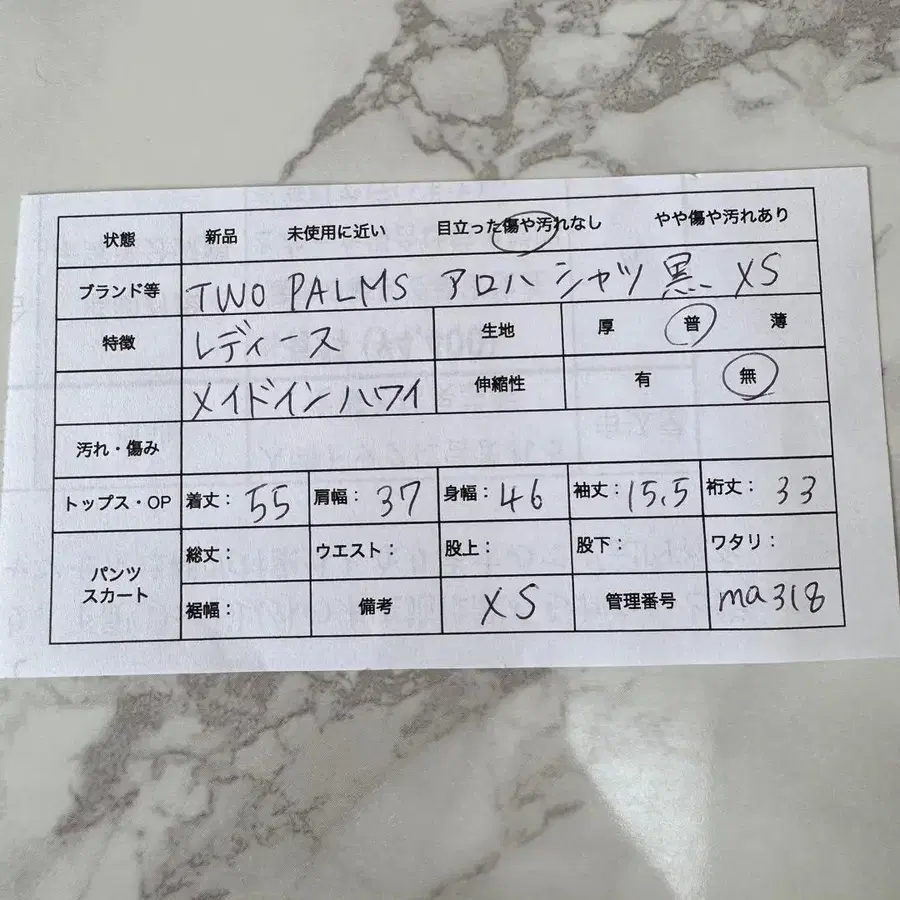 状態 新品 未使用に近い 目立った傷や汚れなし やや傷や汚れあり
ブランド等 TWO PALMS アロハシャツ 黒 XS
特徴 レディース 生地 厚 普 薄
メイドインハワイ 伸縮性 有 無
汚れ・傷み
トップス・OP 着丈: 55 肩幅: 37 身幅: 46 袖丈: 15.5 裄丈: 33
パンツ スカート 総丈: ウエスト: 股上: 股下: ワタリ:
裾幅: 備考 XS 管理番号 ma318